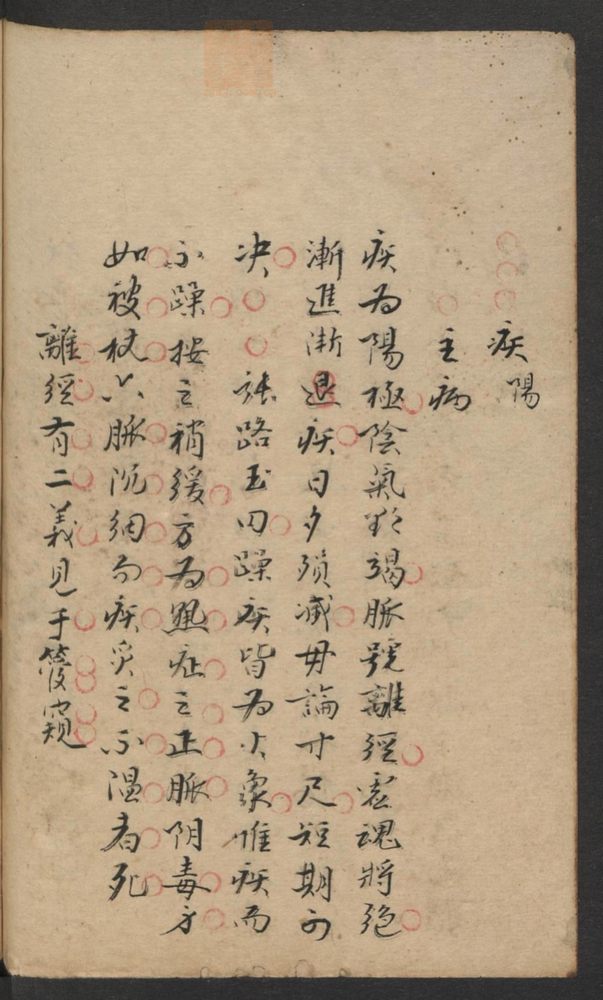 疾 陽
主病
疾为陽極陰氣欲竭脈號離經虛魂將絕
漸進漸退疾日夕殞滅毋論寸尺短期可
决 張路玉曰躁疾皆为火象惟疾而
不躁按之稍緩方为熱症之正脈阴毒身
如被杖六脈沉細而疾灸之不溫者死
離經有二義見于管窺